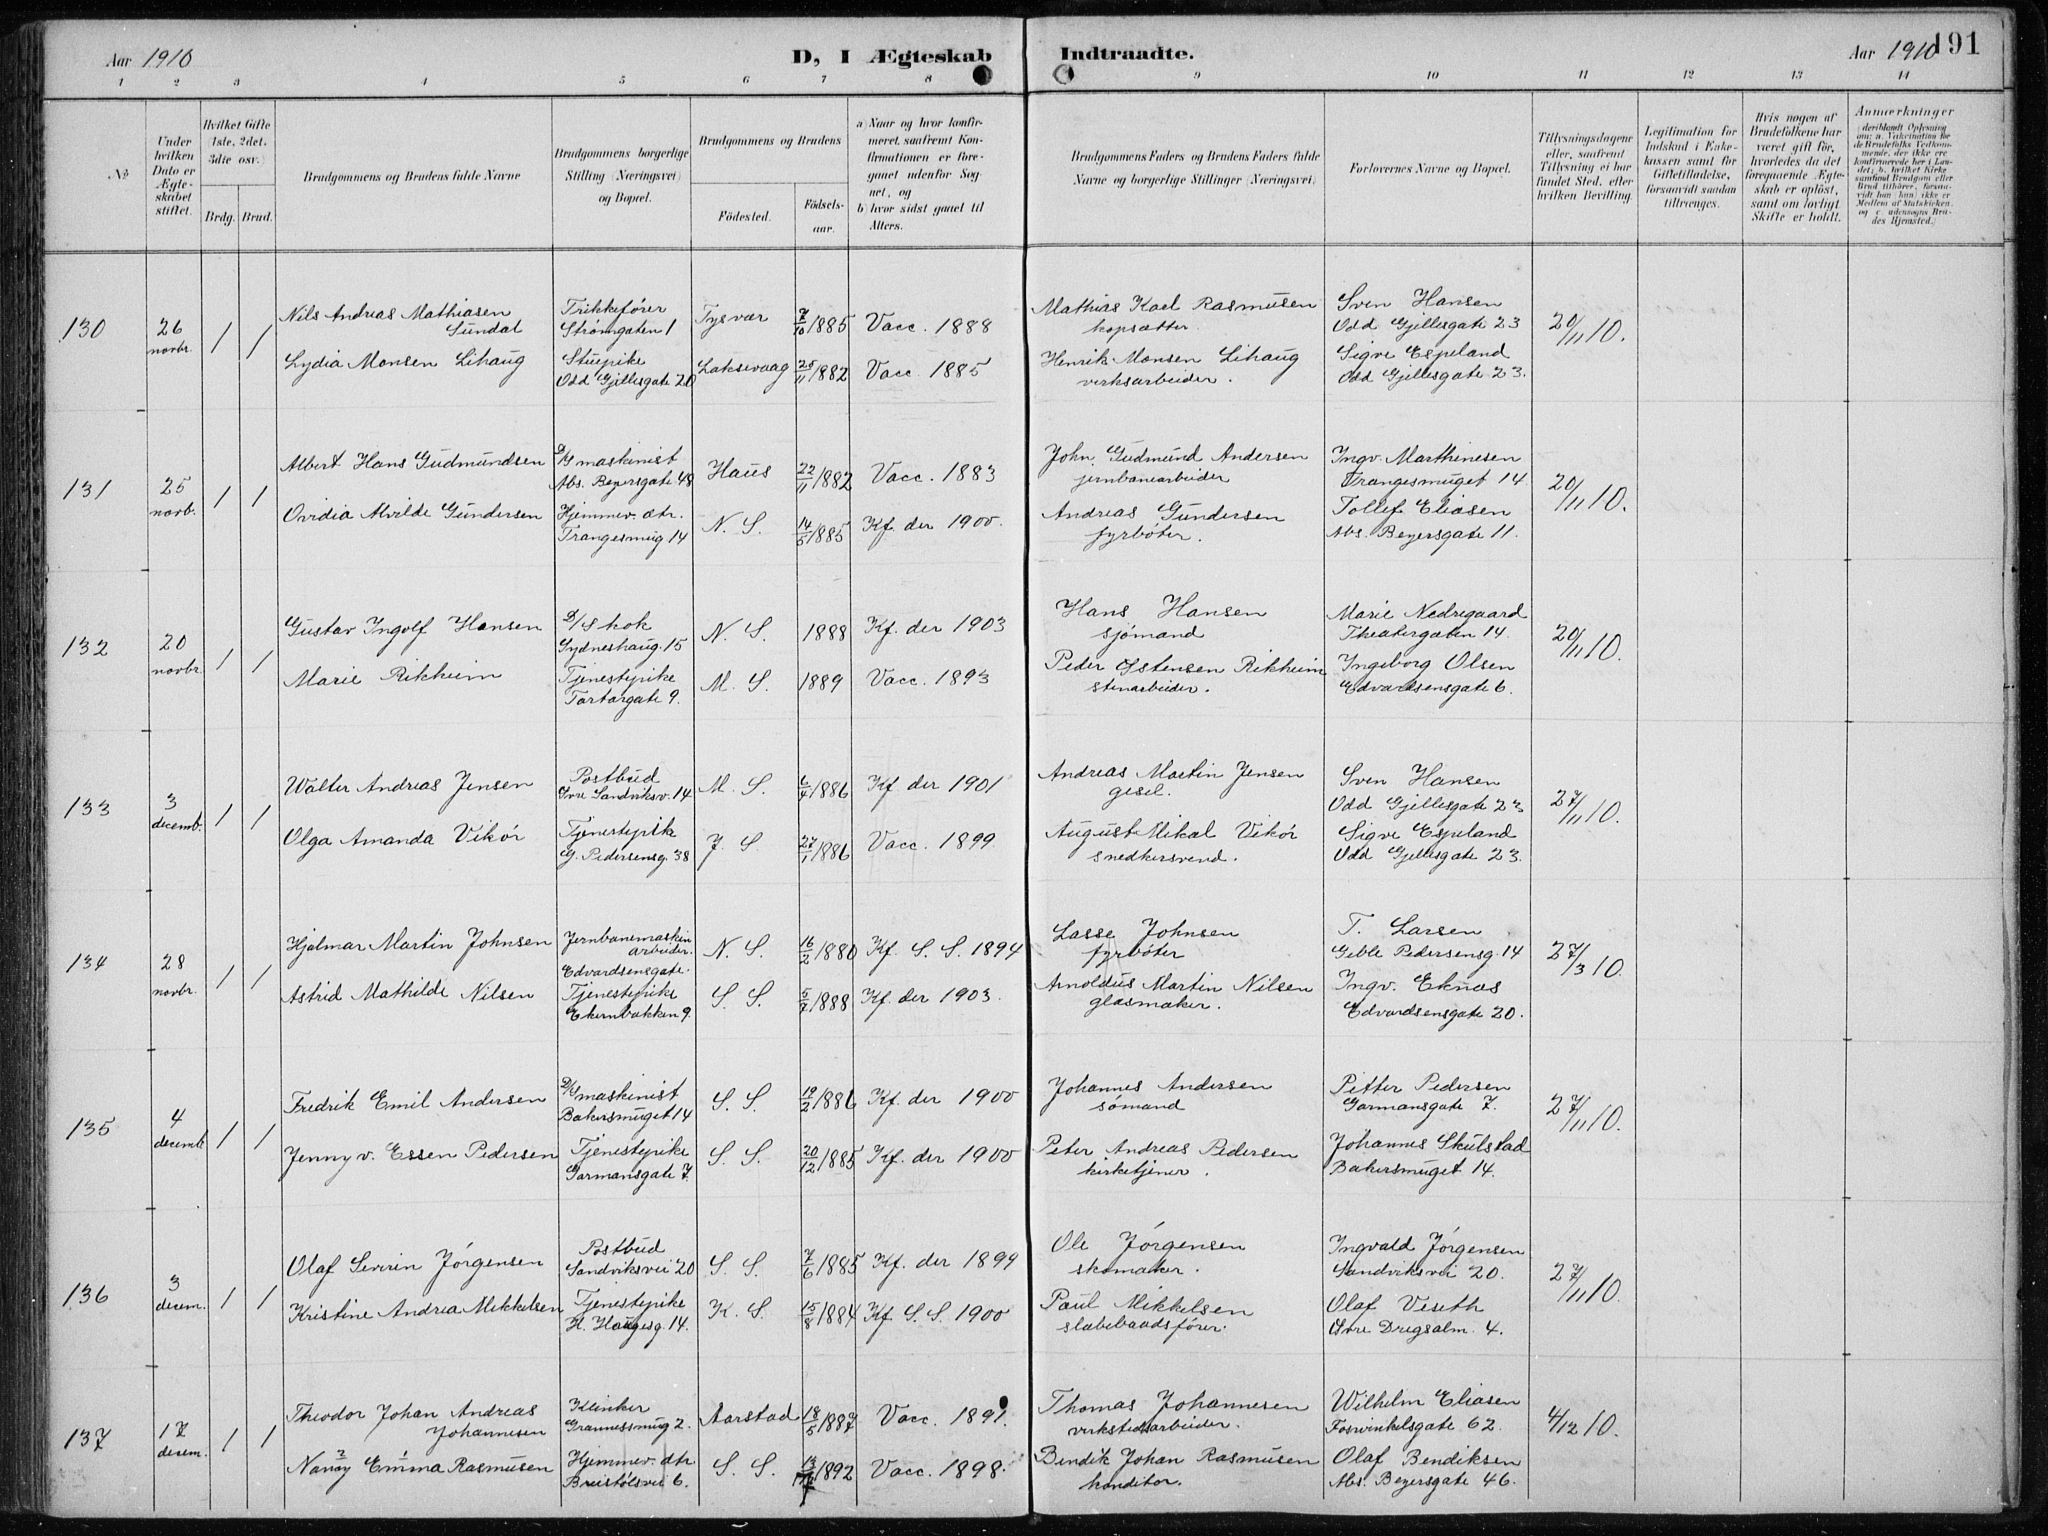 Aar 1910
D, I Ægteskab Indtraadte.
Aar 1910
191
1 2 3 4 5 6 7 8 9 10 11 12 13 14
No
Under hvilken Dato er Ægteskabet stiftet.
Hvilket Gifte 1ste, 2det, 3die osv.)
Brdg. Brud.
Brudgommens og Brudens fulde Navne
Brudgommens borgerlige Stilling (Næringsvei) og Bopæl.
Brudgommens og Brudens
Födested.
Födselsaar.
a) Naar og hvor konfirmeret, saafremt Konfirmationen er foregaaet udenfor Sognet, og
b) hvor sidst gaaet til Alters.
Brudgommens Faders og Brudens Faders fulde Navne og borgerlige Stillinger (Næringsvei)
Forlovernes Navne og Bopæl.
Tillysningsdagene eller, saafremt Tillysning ei har fundet Sted, efter hvilken Bevilling.
Legitimation for Indskud i Enkekassen samt for Giftetilladelse, forsaavidt saadan tiltrænges.
Hvis nogen af Brudefolkene har været gift för, hvorledes da det foregaaende Ægteskab er oplöst, samt om lovligt Skifte er holdt.
Anmærkninger
130
26 novbr.
1 1
Nils Andreas Mathiasen Sundal
Trikkefører
Strømgaten 1
Tysvær
7/10 1885
Vacc. 1888
Mathias Karl Rasmusen
kopsætter
Sven Hansen
Odd Gjellesgate 23
20/11 10.
Lydia Monsen Lihaug
Stuepike
Odd Gjellesgate 20
Laksevaag
25/11 1882
Vacc. 1885
Henrik Monsen Lihaug
verksarbeider.
Sigve Espeland
Odd Gjellesgate 23.
131
25 novb.
1 1
Albert Hans Gudmundsen
D/S maskinist
Abs. Beyersgate 48
Haus
22/11 1882
Vacc. 1883
John Gudmund Andersen
jernbanearbeider
Ingv. Marthinesen
Trangesmuget 14
20/11 10.
Ovidia Alvilde Gundersen
Hjemmev. dtr.
Trangesmug 14
N. S.
14/5 1885
Kf. der 1900.
Andreas Gundersen
fyrbøter.
Tollef Eliasen
Abs. Beyersgate 11.
132
20 novbr.
1 1
Gustav Ingolf Hansen
D/S kok
Sydneshaug. 15
N. S.
1888
Kf. der 1903
Hans Hansen
sjømand
Marie Nedregaard
Theatergaten 14.
20/11 10.
Marie Rikheim
Tjenestepike
Tartargate 9.
M. S.
1889
Vacc. 1893
Peder Østensen Rikheim
stenarbeider.
Ingeborg Olsen
Edvardsensgate 6.
133
3 decemb.
1 1
Walter Andreas Jensen
Postbud
Øvre Sandviksv. 14
M. S.
6/4 1886
Kf. der 1901
Andreas Martin Jensen
gesel.
Sven Hansen
Odd Gjellesgate 23
27/11 10.
Olga Amanda Vikør
Tjenestepik
G. Pedersensg. 38
J. S.
27/1 1886
Vacc. 1899.
August Mikal Vikør
snedkersvend.
Sigve Espeland
Odd Gjellesgate 23.
134
28 novbr.
1 1
Hjalmar Martin Johnsen
Jernbanemaskin
arbeider.
Edvardsensgate.
N. S.
16/2 1880
Kf. S. S. 1894
Lasse Johnsen
fyrbøter
T. Larsen
Geble Pedersensg. 14
27/3 10.
Astrid Mathilde Nilsen
Tjenestepike
Ekernbakken 9.
S. S.
5/7 1888
Kf. der 1903.
Arnoldus Martin Nilsen
glasmaker.
Ingv. Eknæs
Edvardsensgate 20.
135
4 decemb.
1 1
Fredrik Emil Andersen
D/S maskinist
Bakersmuget 14
S. S.
19/2 1886
Kf. der 1900
Johannes Andersen
sømand
Petter Pedersen
Garmansgate 7.
27/11 10.
Jenny v. Essen Pedersen
Tjenestepike
Garmansgate 7.
S. S.
20/12 1885
Kf. der 1900
Peter Andreas Pedersen
kirketjener.
Johannes Skulstad
Bakersmuget 14.
136
3 decem.
1 1
Olaf Severin Jörgensen
Postbud
Sandviksvei 20
S. S.
7/6 1885
Kf. der 1899
Ole Jörgensen
skomaker.
Ingvald Jörgensen
Sandviksvei 20.
27/11 10.
Kristine Andrea Mikkelsen
Tjenestepike
H. Haugesg. 14.
K. S.
15/8 1884
Kf. S. S. 1900
Paul Mikkelsen
slæbebaadsfører.
Olaf Veseth
Øvre Dregsalm. 4.
137
17 decem.
1 1
Theodor Johan Andreas Johannesen
Klinker
Grannessmug 2.
Aarstad
18/5 1887
Vacc. 1891.
Thomas Johannesen
verkstedarbeider.
Wilhelm Eliasen
Fosvinkelsgate 62.
4/12 10.
Nancy Emma Rasmusen
Hjemmev. dtr
Breistølsvei 6.
S. S.
1892
Vacc. 1898.
Bendik Johan Rasmusen
konditor.
Olaf Bendiksen
Abs. Beyersgate 46.